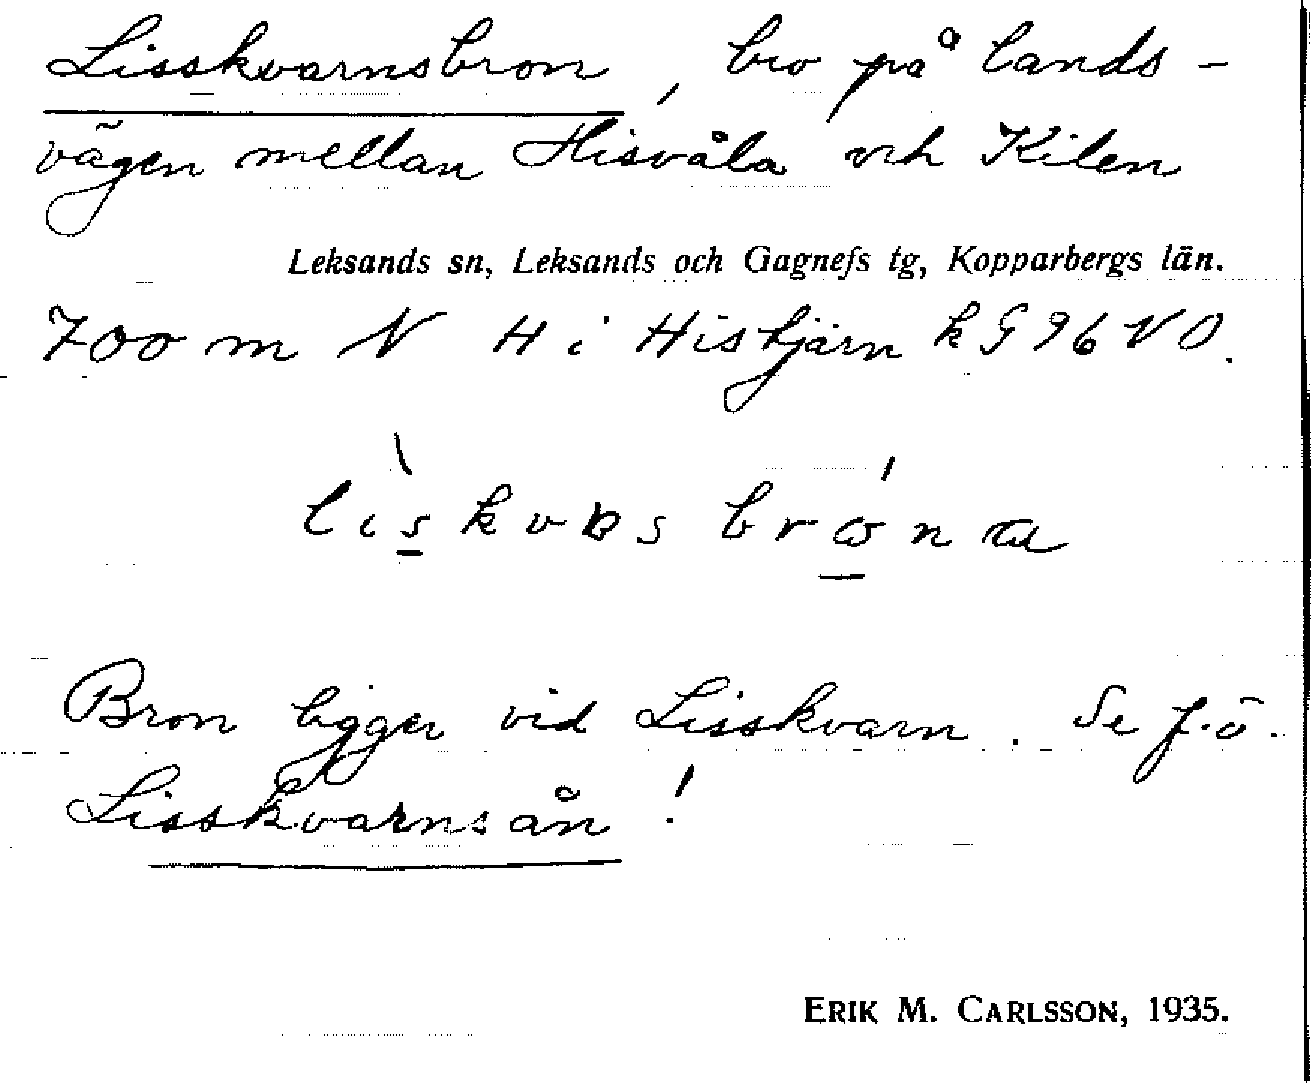 Lisskvarnsbron, bro på lands-
vägen mellan Hisvåla och Kilen
Leksands sn, Leksands och Gagnefs tg, Kopparbergs län.
700 m N H i Histjärn kG96VO.
Bron ligger vid Lisskvarn. Se f.ö.
Lisskvarnsån!
ERIK M. CARLSSON, 1935.